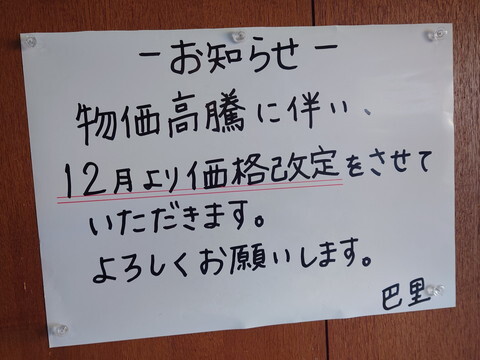 －お知らせ－
物価高騰に伴い、
12月より価格改定をさせて
いただきます。
よろしくお願いします。
巴里